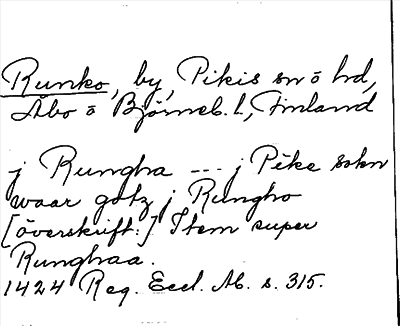 Runko, by, Pikis sn o hd,
Åbo o Björneb. l., Finland
j Rungha --- j Pike sokn
waar gotz j Rungho
[överskrift:] Item super
Runghaa.
1424 Reg. Eccl. Ab. s. 315.